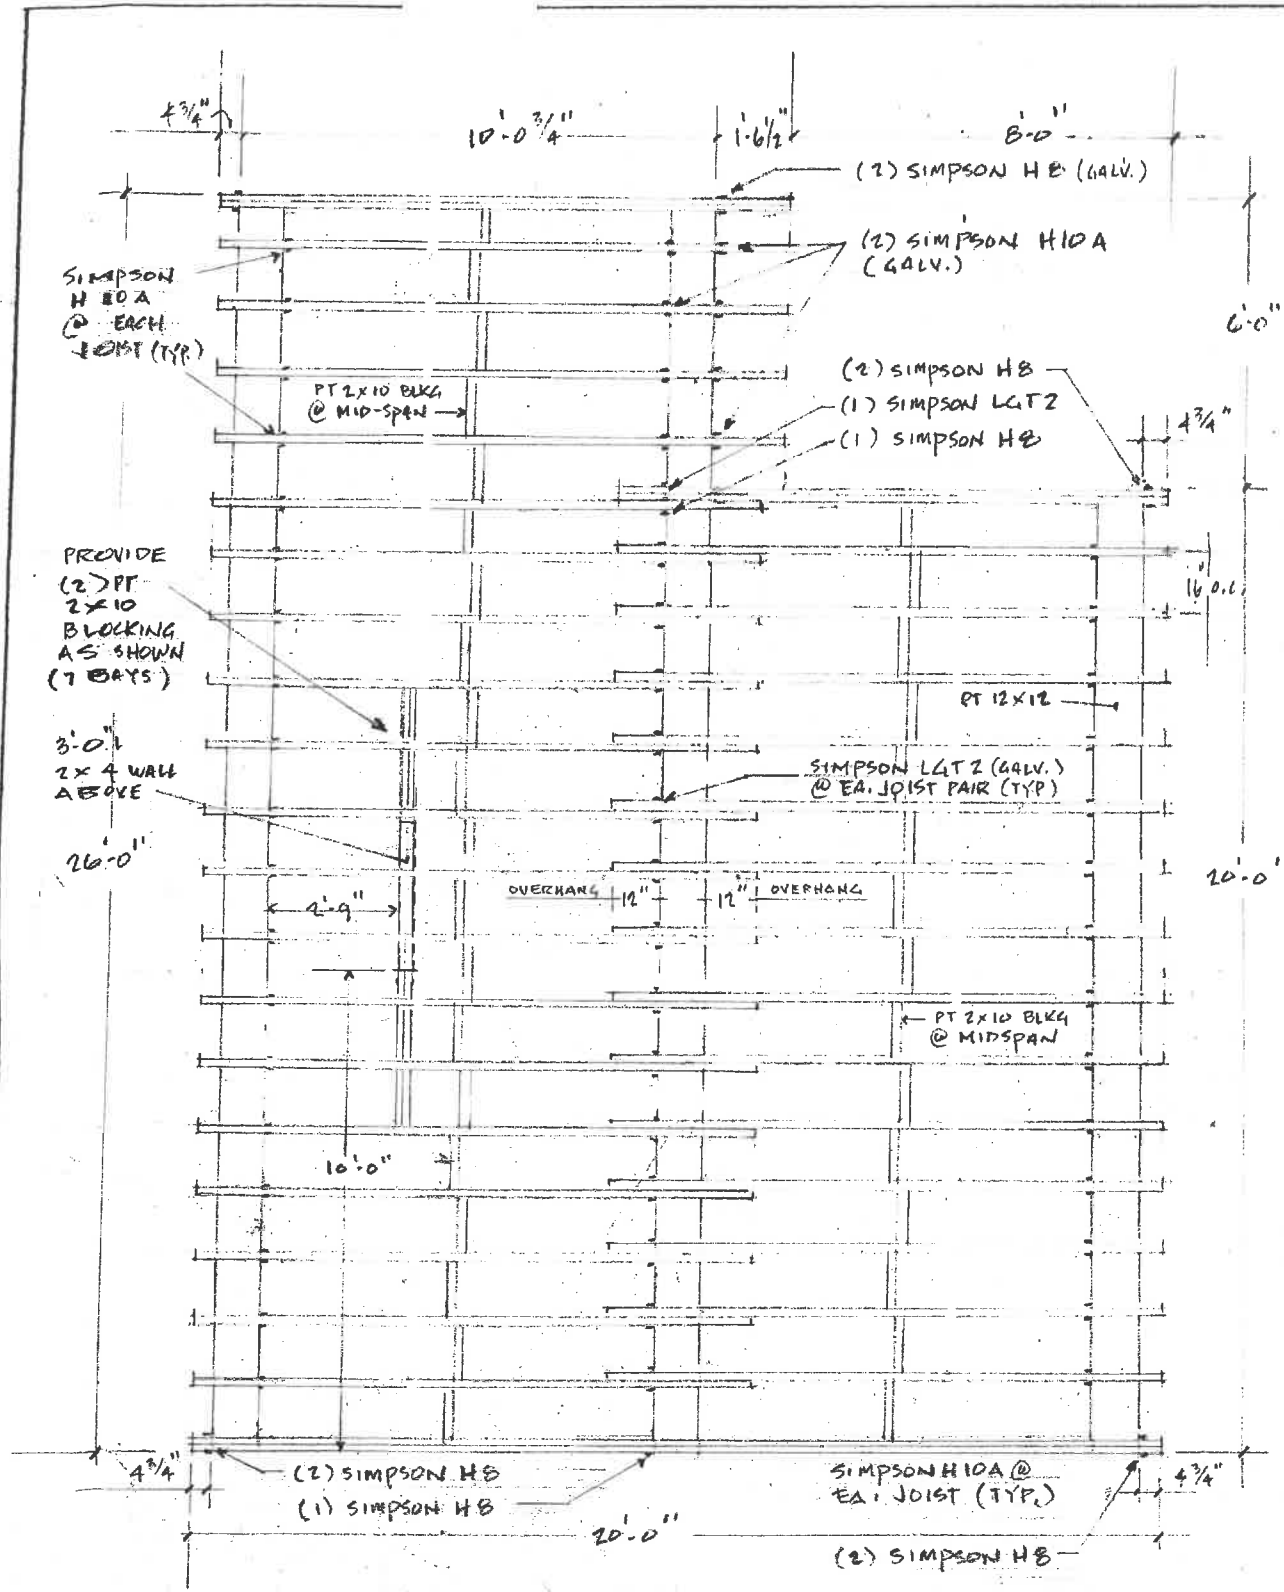 4 3/4"
10'-0 3/4"
1'-6 1/2"
8'-0"
(2) SIMPSON H8 (GALV.)
(2) SIMPSON H10A
(GALV.)
SIMPSON
H10A
@ EACH
JOIST (TYP.)
6'-0"
PT 2x10 BLKG
@ MID-SPAN
(2) SIMPSON H8
(1) SIMPSON LGT2
(1) SIMPSON H8
4 3/4"
PROVIDE
(2) PT
2x10
BLOCKING
AS SHOWN
(7 BAYS)
16" O.C.
PT 12x12
3'-0"
2x4 WALL
ABOVE
SIMPSON LGT2 (GALV.)
@ EA. JOIST PAIR (TYP)
26'-0"
20'-0"
OVERHANG 12" 12" OVERHANG
2'-9"
PT 2x10 BLKG
@ MIDSPAN
10'-0"
4 3/4"
(2) SIMPSON H8
(1) SIMPSON H8
SIMPSON H10A @
EA. JOIST (TYP.)
4 3/4"
20'-0"
(2) SIMPSON H8